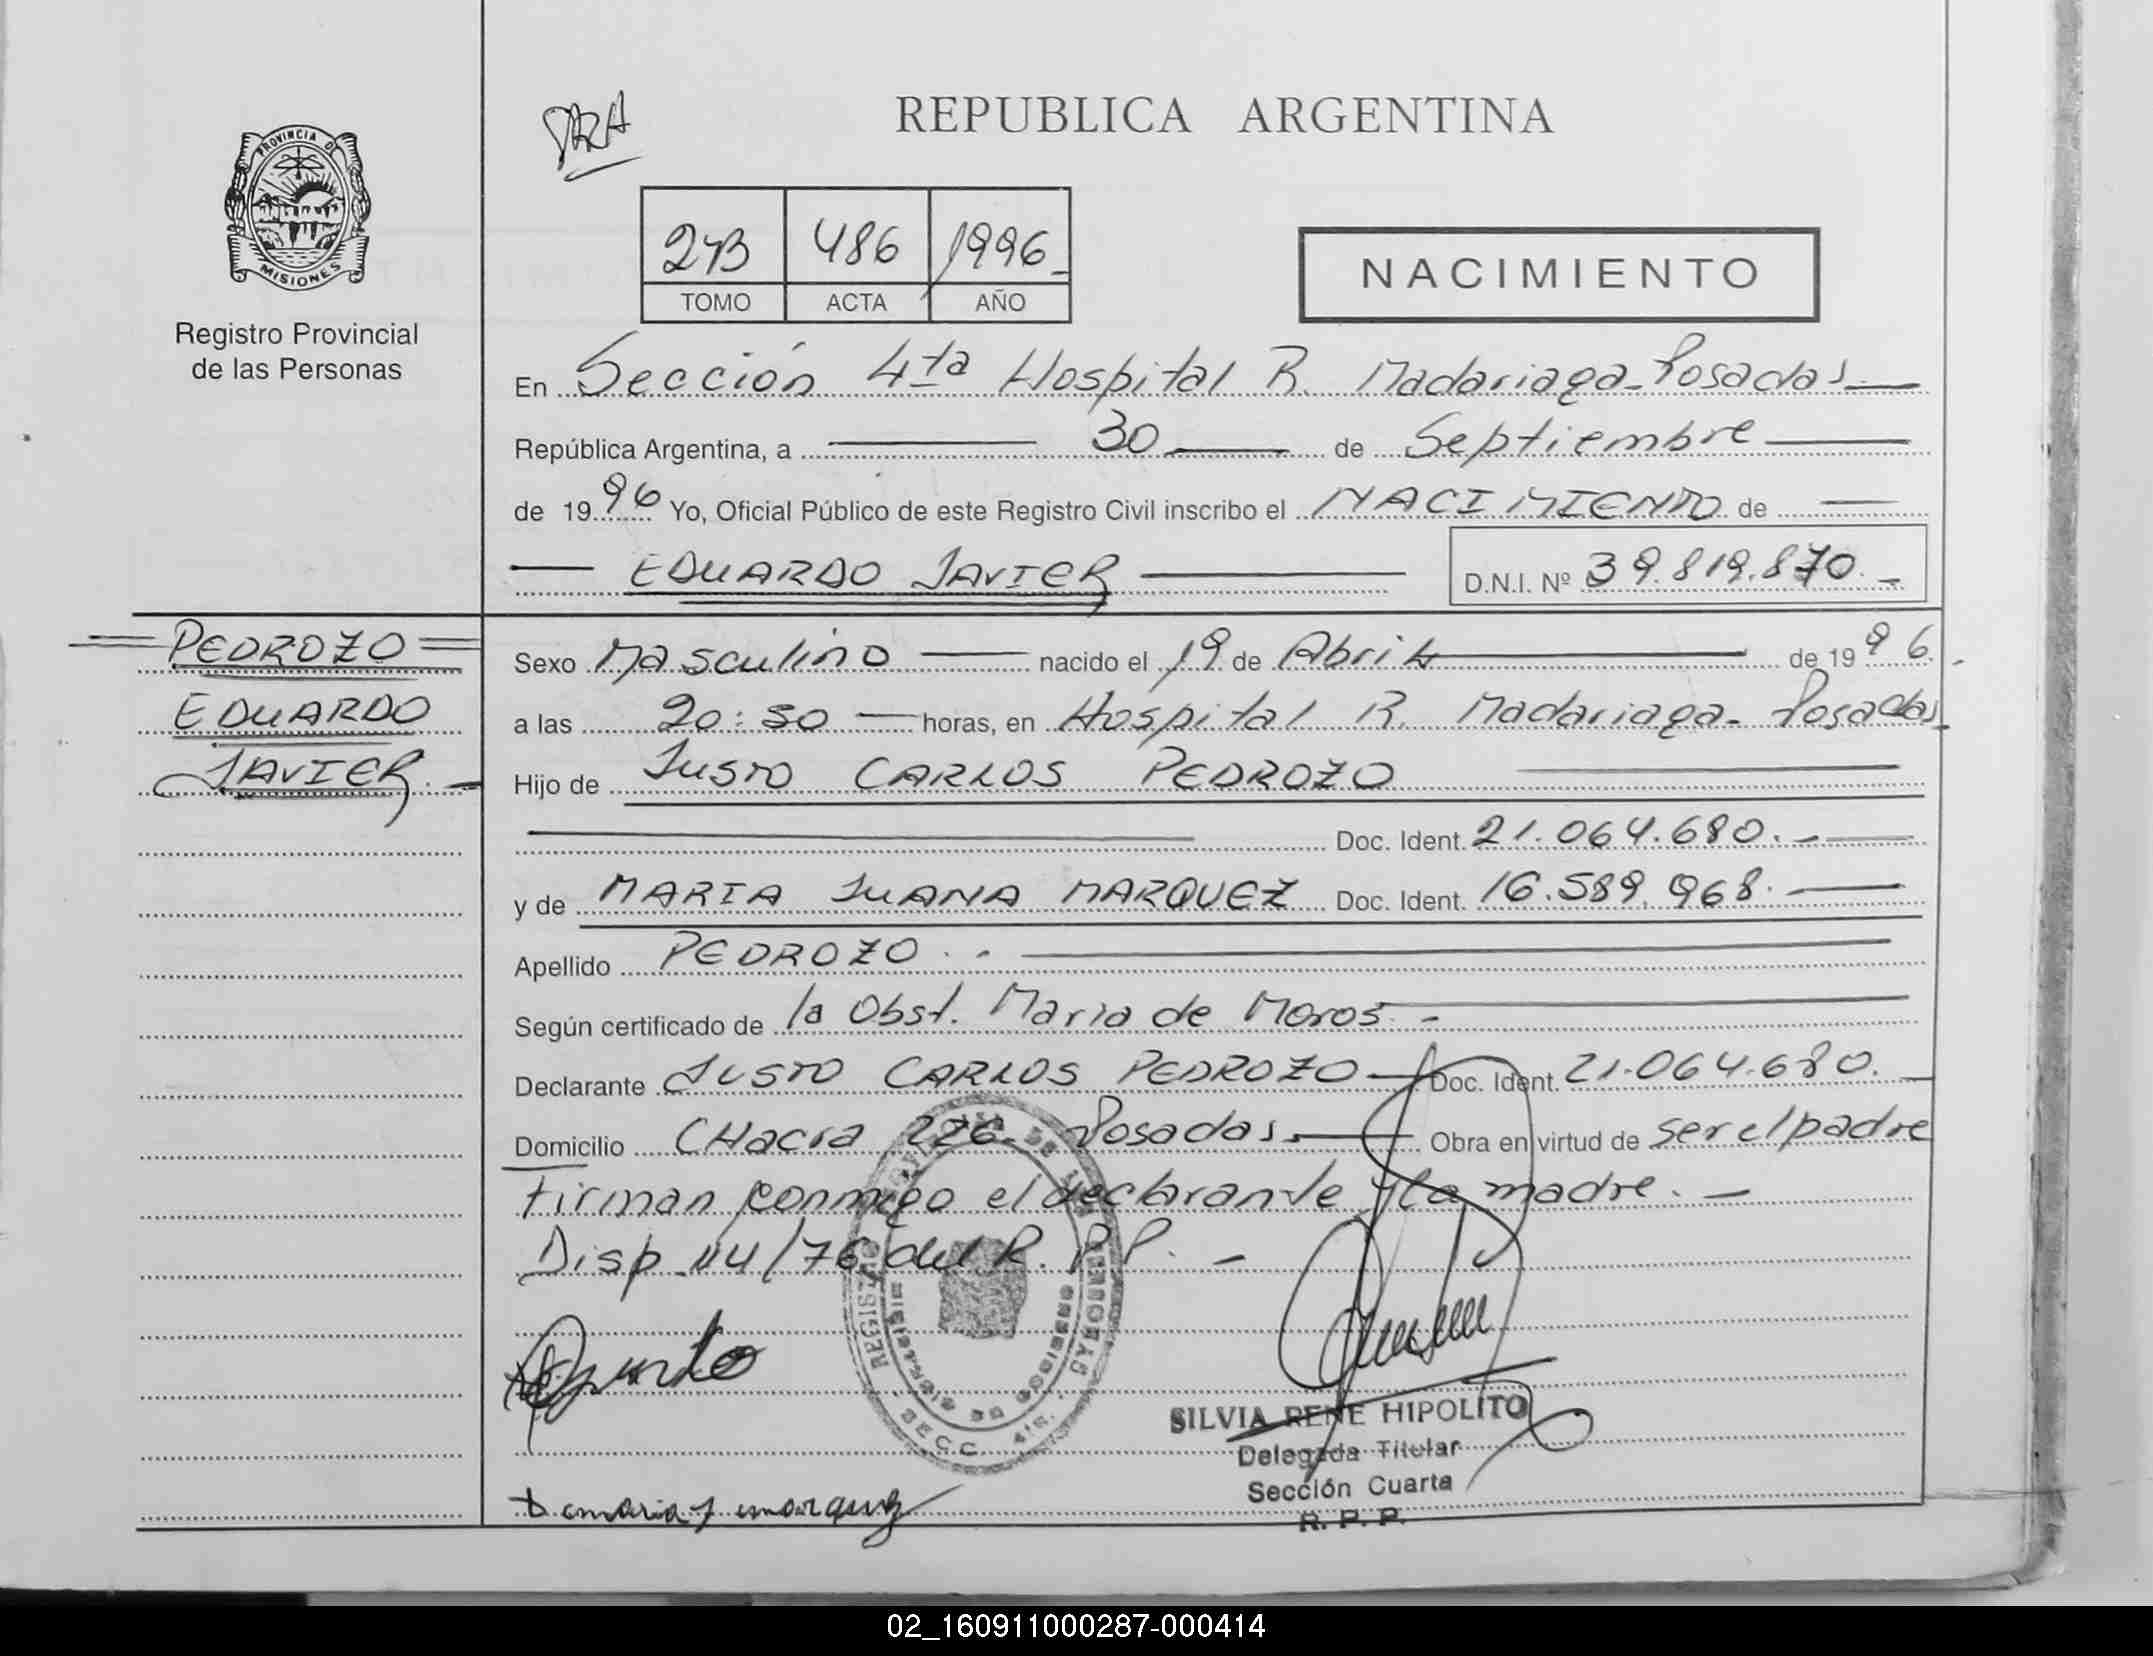 REPUBLICA ARGENTINA
PROVINCIA DE
MISIONES
Registro Provincial
de las Personas
486 1996
TOMO ACTA AÑO
NACIMIENTO
En Sección 4ta Hospital R. Madariaga - Posadas
República Argentina, a 30 de Septiembre
de 1996 Yo, Oficial Público de este Registro Civil inscribo el NACIMIENTO de
EDUARDO JAVIER D.N.I. Nº 39.819.870.-
PEDROZO
EDUARDO
JAVIER.-
Sexo Masculino nacido el 19 de Abril de 1996.
a las 20:50 horas, en Hospital R. Madariaga - Posadas
Hijo de JUSTO CARLOS PEDROZO
Doc. Ident. 21.064.680.-
y de MARIA JUANA MARQUEZ Doc. Ident. 16.589.968.
Apellido PEDROZO.-
Según certificado de la Obst. Maria de Moros.-
Declarante JUSTO CARLOS PEDROZO Doc. Ident. 21.064.680.
Domicilio CHacra 226 - Posadas.- Obra en virtud de ser el padre
Firman conmigo el declarante y la madre.-
Disp. 114/76 del R.P.P.-
SILVIA RENE HIPOLITO
Delegada Titular
Sección Cuarta
R. P. P.
02_160911000287-000414